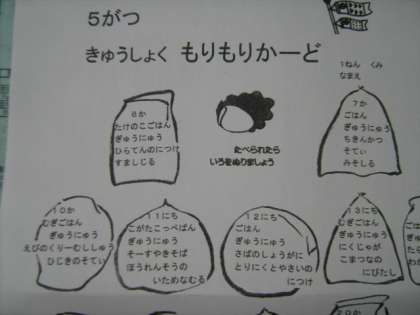 5がつ
きゅうしょく もりもりかーど
1ねん くみ
なまえ
6か
たけのこごはん
ぎゅうにゅう
ひらてんのにつけ
すましじる
たべられたら
いろをぬりましょう
7か
ごはん
ぎゅうにゅう
ちきんかつ
そてぃ
みそしる
10か
むぎごはん
ぎゅうにゅう
えびのくりーむししゅう
ひじきのそてぃ
11にち
こがたこっぺぱん
ぎゅうにゅう
そーすやきそば
ほうれんそうの
いためなむる
12にち
ごはん
ぎゅうにゅう
さばのしょうがに
とりにくとやさいの
につけ
13にち
むぎごはん
ぎゅうにゅう
にくじゃが
こまつなの
にびたし